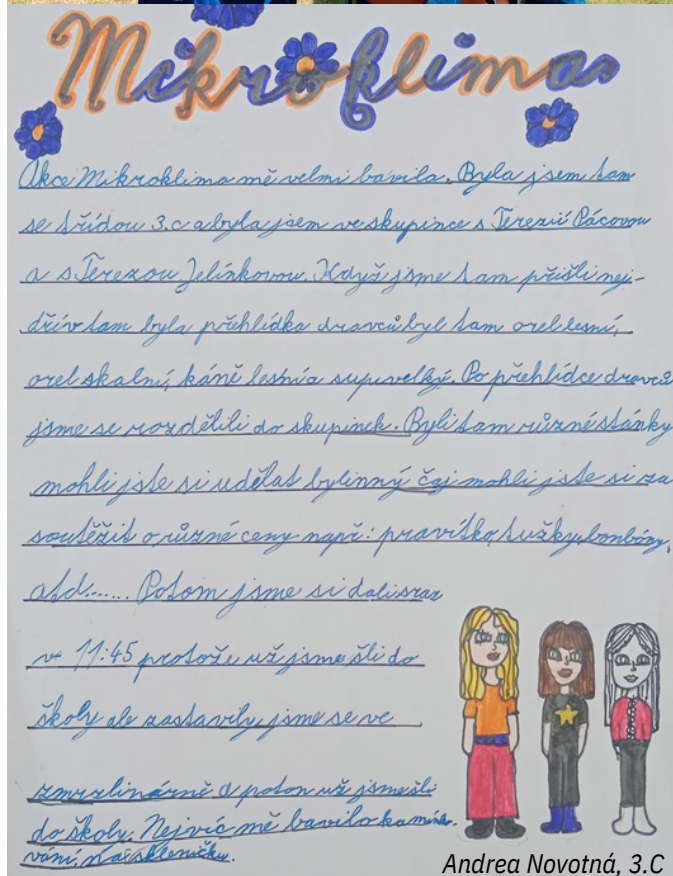 Mikroklima
Akce Mikroklima mě velmi bavila. Byla jsem tam
se třídou 3.c a byla jsem ve skupince s Terezií Pácovou
a s Terezou Jelínkovou. Když jsme tam přišli nej-
dřív tam byla přehlídka dravců byl tam orel lesní,
orel skalní, káně lesní a sup velký. Po přehlídce dravců
jsme se rozdělili do skupinek. Byli tam různé stánky
mohli jste si udělat bylinný čaj mohli jste si za
soutěžit o různé ceny např: pravítko, tužky, bonbóny,
atd...... Potom jsme si dali sraz
v 11:45 protože už jsme šli do
školy ale zastavily jsme se ve
zmrzlinárně a poton už jsme šli
do školy. Nejvíc mě bavilo kamín-
vání na skleničku.
Andrea Novotná, 3.C